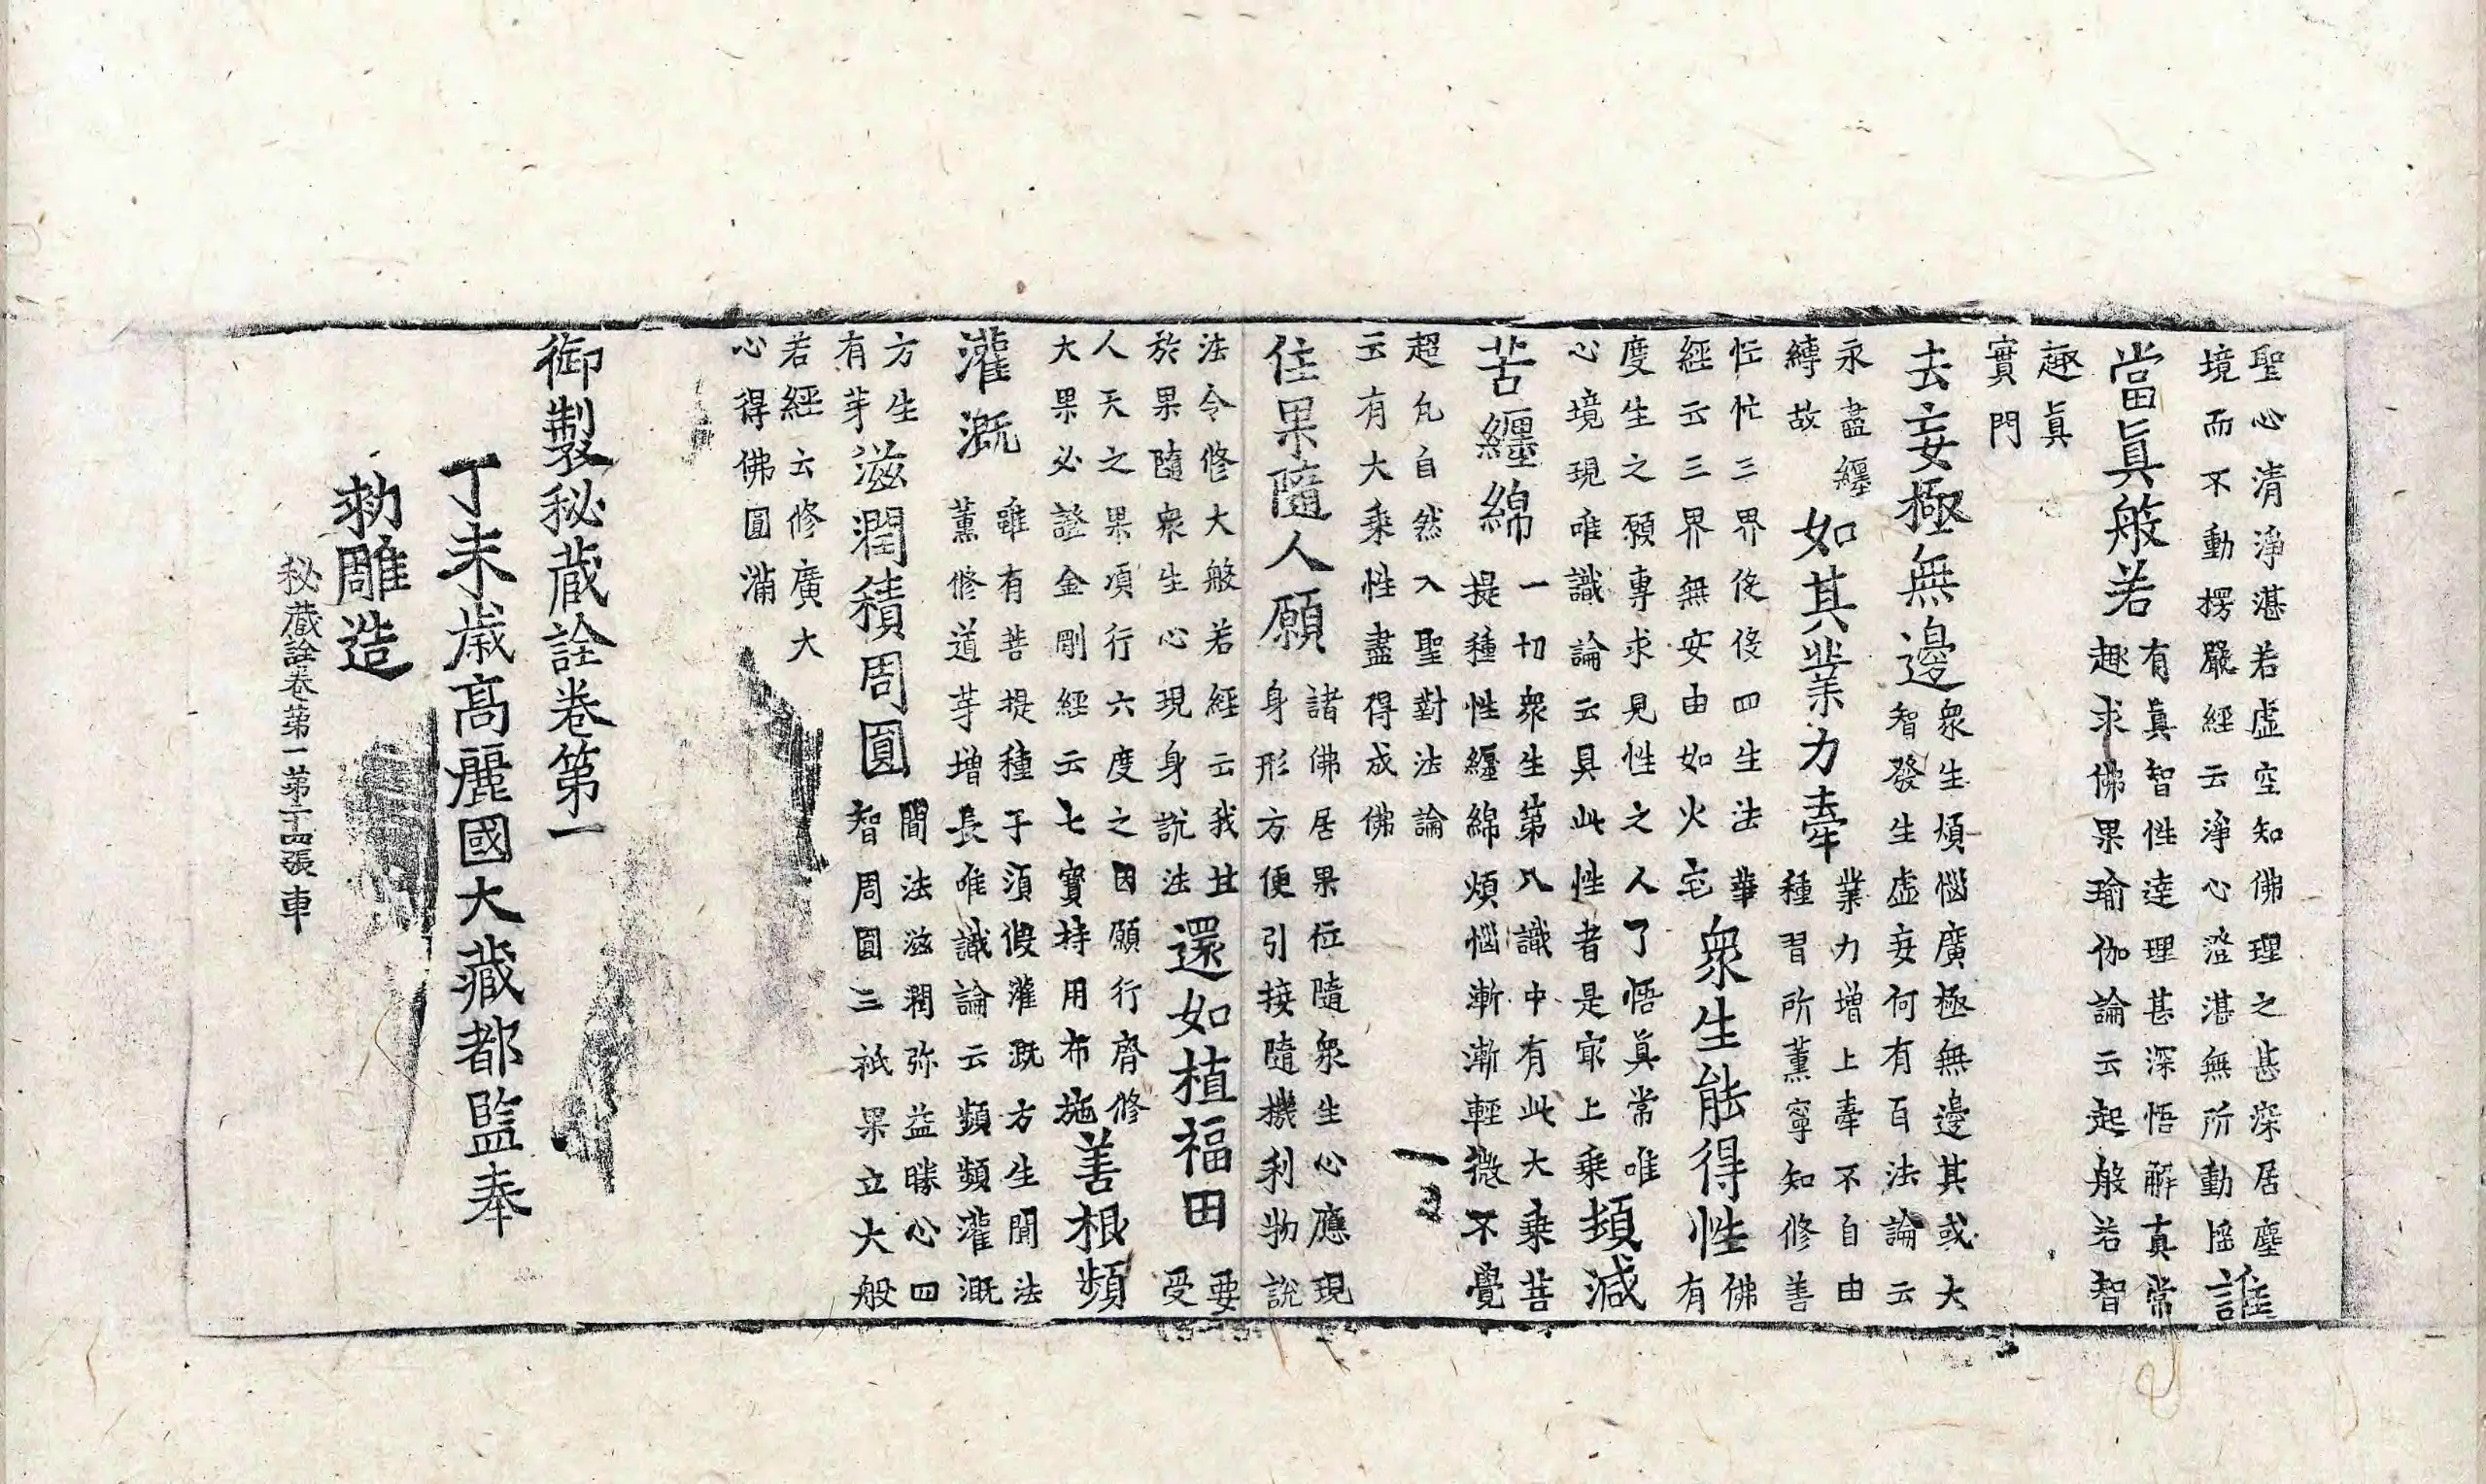 聖心清淨湛若虛空知佛理之甚深居塵
境而不動楞嚴經云淨心澄湛無所動搖
誰
當眞般若
有眞智性達理甚深悟解真常
趣求佛果瑜伽論云起般若智
趣眞
實門
去妄極無邊
衆生煩惱廣極無邊其或大
智發生虛妄何有百法論云
永盡纏
縛故
如其業力牽
業力增上牽不自由
種習所薰寧知修善
忙忙三界伇伇四生法華
經云三界無安由如火宅
衆生能得性
佛
有
度生之願專求見性之人了悟眞常唯
心境現唯識論云具此性者是冣上乘
頓減
苦纏綿
一切衆生第八識中有此大乘菩
提種性纏綿煩惱漸漸輕微不覺
超凡自然入聖對法論
云有大乘性盡得成佛
住果隨人願
諸佛居果位隨衆生心應現
身形方便引接隨機利物說
法令修大般若經云我甘
於果隨衆生心現身說法
還如植福田
要
受
人天之果須行六度之因願行齊修
大果必證金剛經云七寶持用布施
善根頻
灌溉
雖有菩提種子須假灌溉方生聞法
薰修道芽增長唯識論云頻頻灌溉
方生
有芽
滋潤積周圓
聞法滋潤弥益勝心四
智周圓三祇果立大般
若經云修廣大
心得佛圓滿
御製秘蔵詮卷第一
丁未歲高麗國大藏都監奉
勑雕造
秘蔵詮卷第一 第二十四張 車